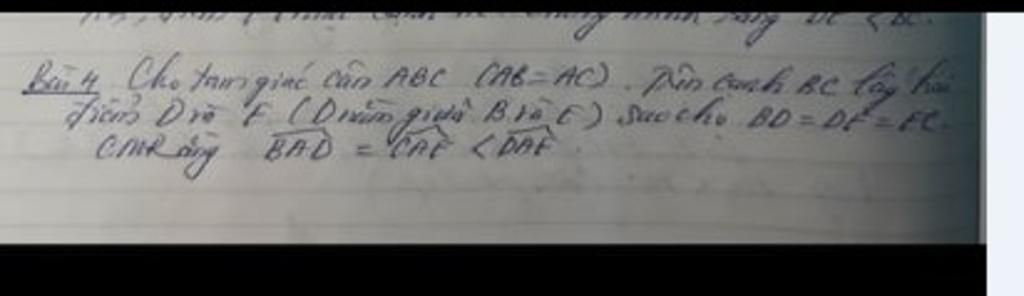 Bài 4 Cho tam giác cân ABC (AB = AC). Trên cạnh BC lấy hai
điểm D và E (D nằm giữa B và E) sao cho BD = DE = EC.
CMRằng BAD = CAE < DAE.